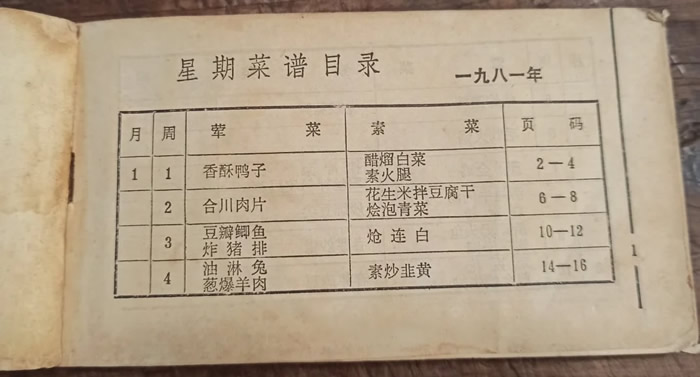 星期菜谱目录
一九八一年
月 周 荤菜 素菜 页码
1 1 香酥鸭子 醋熘白菜 2—4
素火腿
2 合川肉片 花生米拌豆腐干 6—8
烩泡青菜
3 豆瓣鲫鱼 炝连白 10—12
炸猪排
4 油淋兔 素炒韭黄 14—16
葱爆羊肉
1